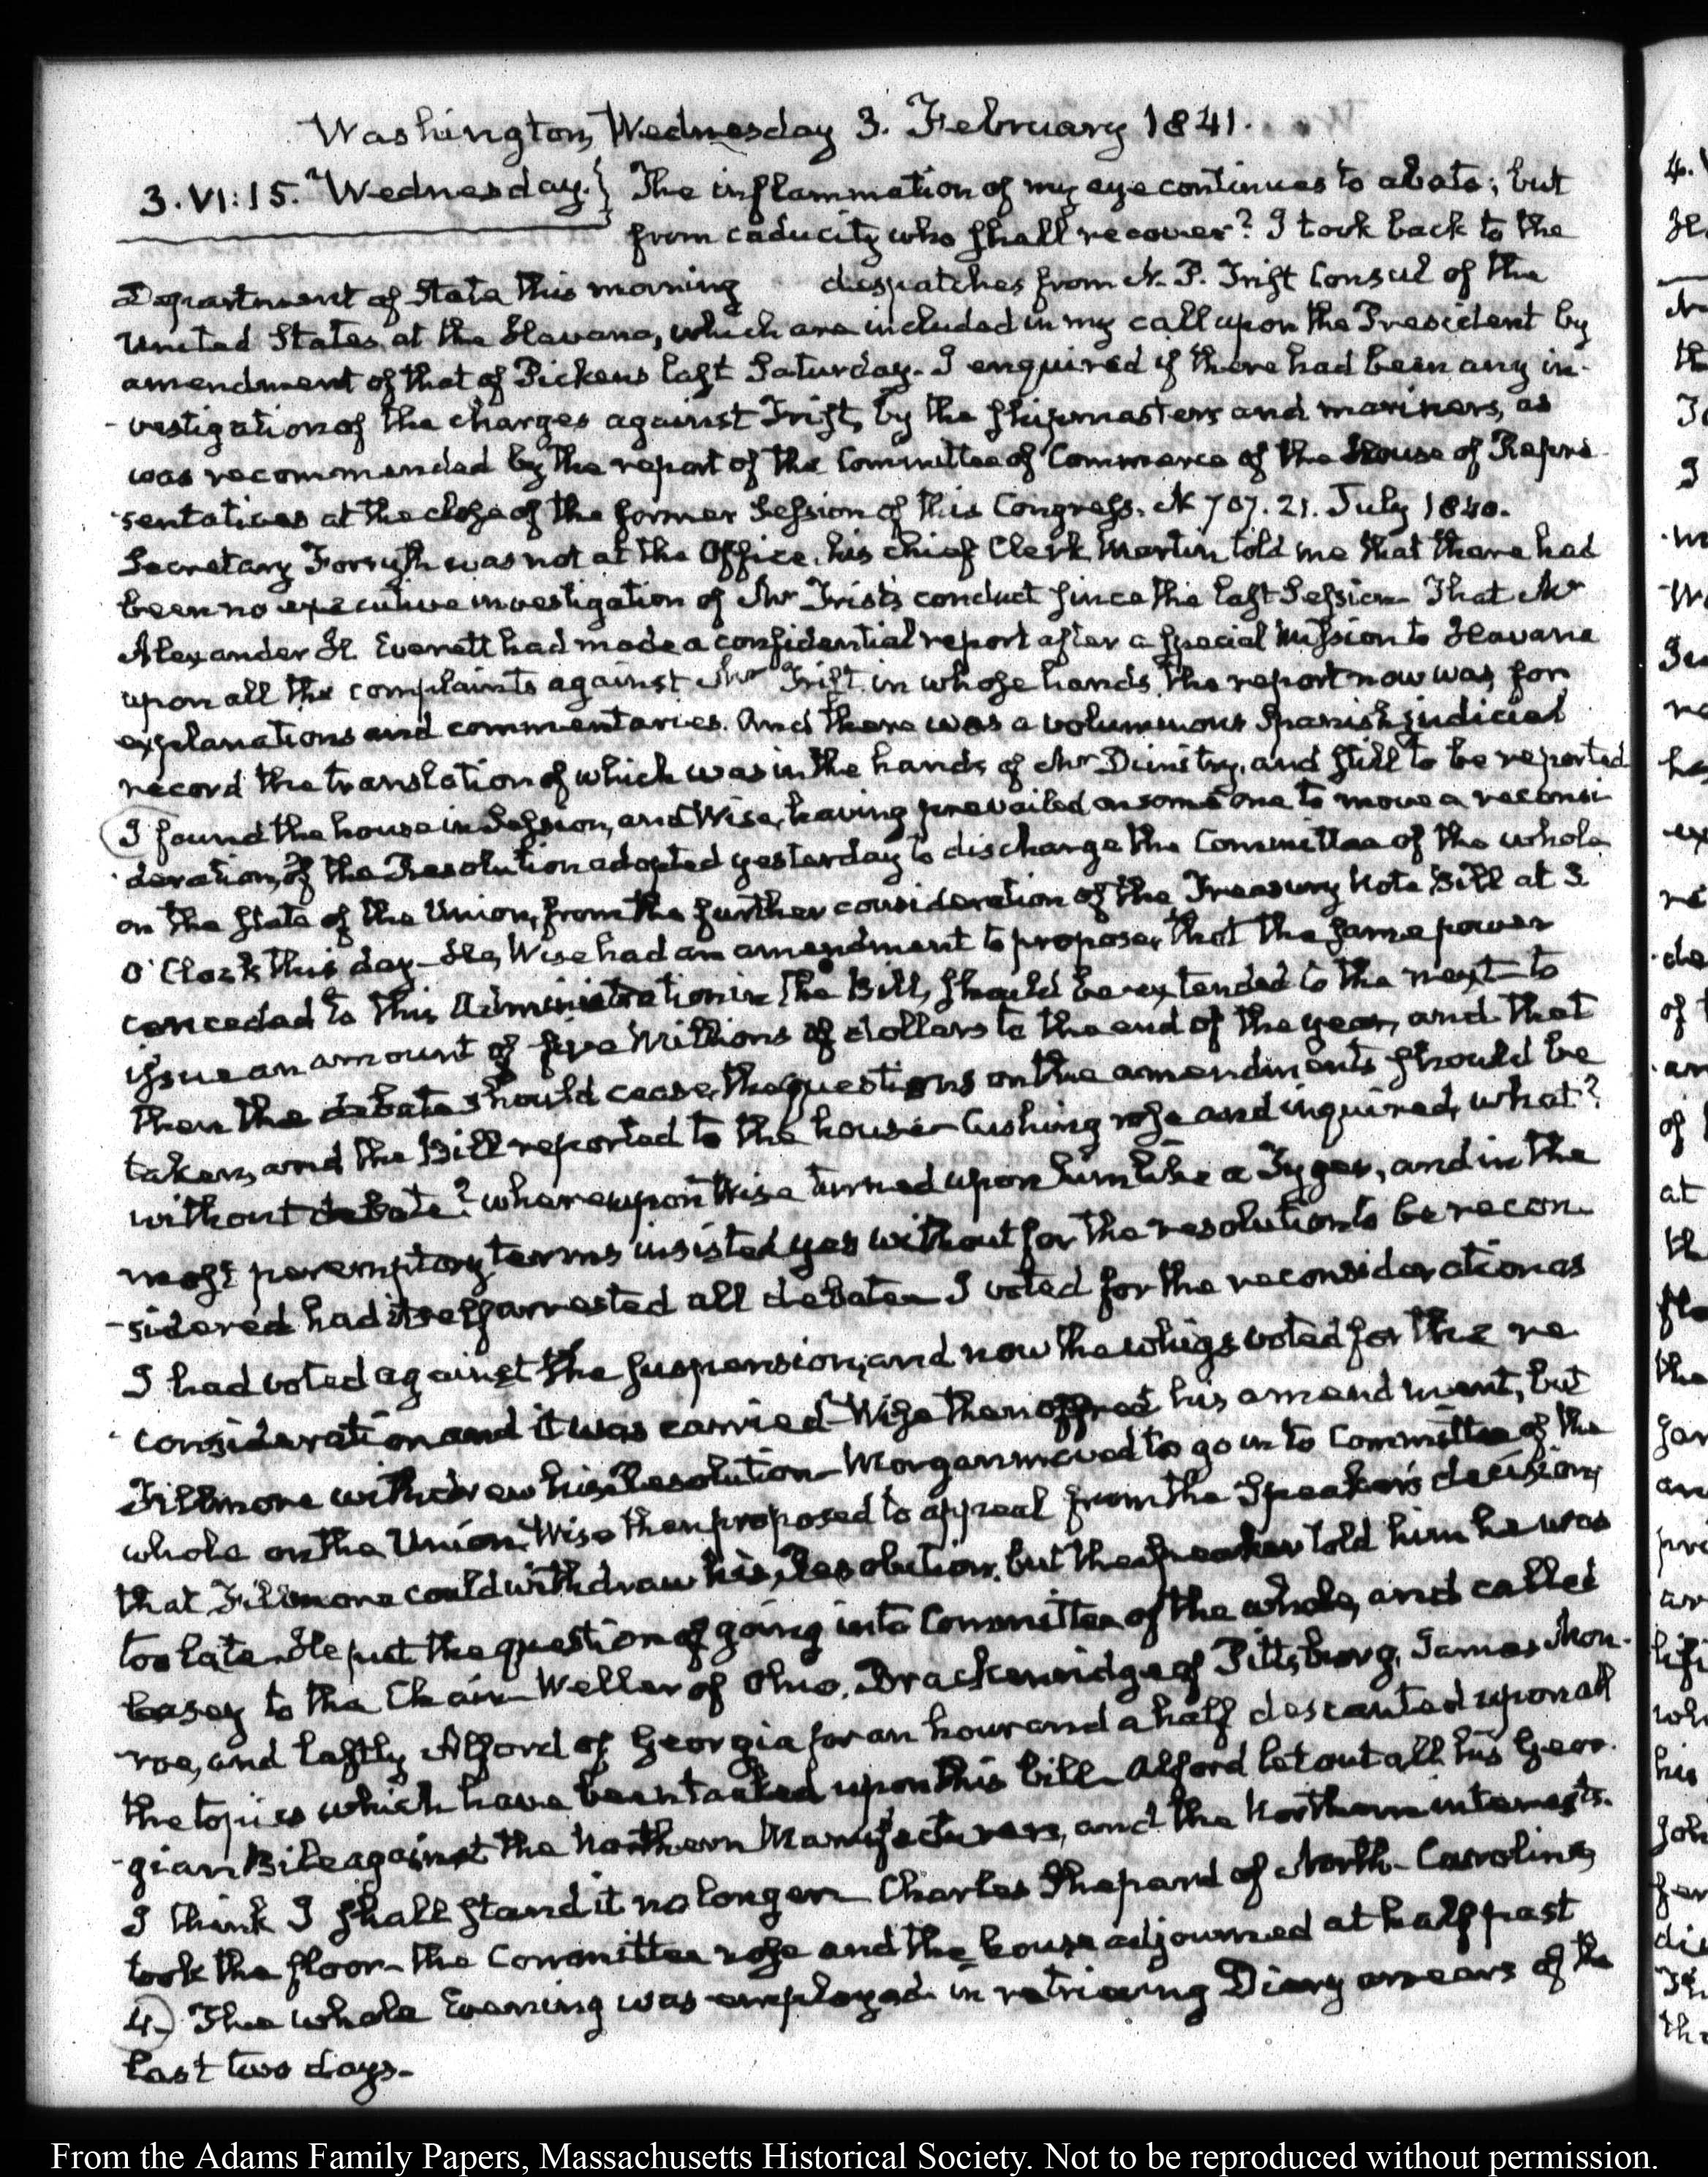 Washington, Wednesday 3. February 1841.
3. VI:15. Wednesday. } The inflammation of my eye continues to abate; but
from caducity who shall recover? I took back to the
Department of State this morning despatches from N. P. Trist Consul of the
United States at the Havana, which are included in my call upon the President by
amendment of that of Pickens last Saturday. I enquired if there had been any in-
-vestigation of the charges against Trist, by the shipmasters and mariners, as
was recommended by the report of the Committee of Commerce of the House of Repre-
-sentatives at the close of the former Session of this Congress. N 707. 21. July 1840.
Secretary Forsyth was not at the Office, his chief Clerk Martin told me that there had
been no executive investigation of Mr Trist's conduct since the last Session. That Mr
Alexander H Everett had made a confidential report after a special mission to Havana
upon all the complaints against Mr Trist, in whose hands the report now was, for
explanations and commentaries. And there was a voluminous Spanish judicial
record the translation of which was in the hands of Mr Dimitry, and still to be reported
I found the house in Session, and Wise, having prevailed on some one to move a reconsi-
-deration, of the Resolution adopted yesterday to discharge the Committee of the whole
on the state of the Union, from the further consideration of the Treasury Note Bill at 3
O'Clock this day. He, Wise had an amendment to propose, that the same power
conceded to this Administration in the Bill, should be extended to the next to
issue an amount of five Millions of dollars to the end of the year, and that
then the debate should cease, the questions on the amendments should be
taken, and the Bill reported to the house. Cushing rose and inquired, what?
without debate? whereupon Wise turned upon him like a Tyger, and in the
most peremptory terms insisted yes without for the resolution to be recon-
-sidered had itself arrested all debate. I voted for the reconsideration as
I had voted against the suspension, and now the whigs voted for the re-
-consideration and it was carried. Wise then offered his amendment, but
Fillmore withdrew his Resolution. Morgan moved to go into Committee of the
whole on the Union. Wise then proposed to appeal from the Speaker's decision,
that Fillmore could withdraw his Resolution, but the speaker told him he was
too late. He put the question of going into Committee of the whole, and called
Casey to the Chair. Weller of Ohio, Brackenridge of Pittsburg, James Mon-
-roe, and lastly Alford of Georgia for an hour and a half descanted upon all
the topics which have been tacked upon this bill. Alford let out all his Geor-
-gian Bile against the Northern Manufacturers, and the Northern interests.
I think I shall stand it no longer. Charles Shepard of North-Carolina,
took the floor. the Committee rose and the house adjourned at half past
4. The whole Evening was employed in retrieving Diary arrears of the
last two days.
From the Adams Family Papers, Massachusetts Historical Society. Not to be reproduced without permission.